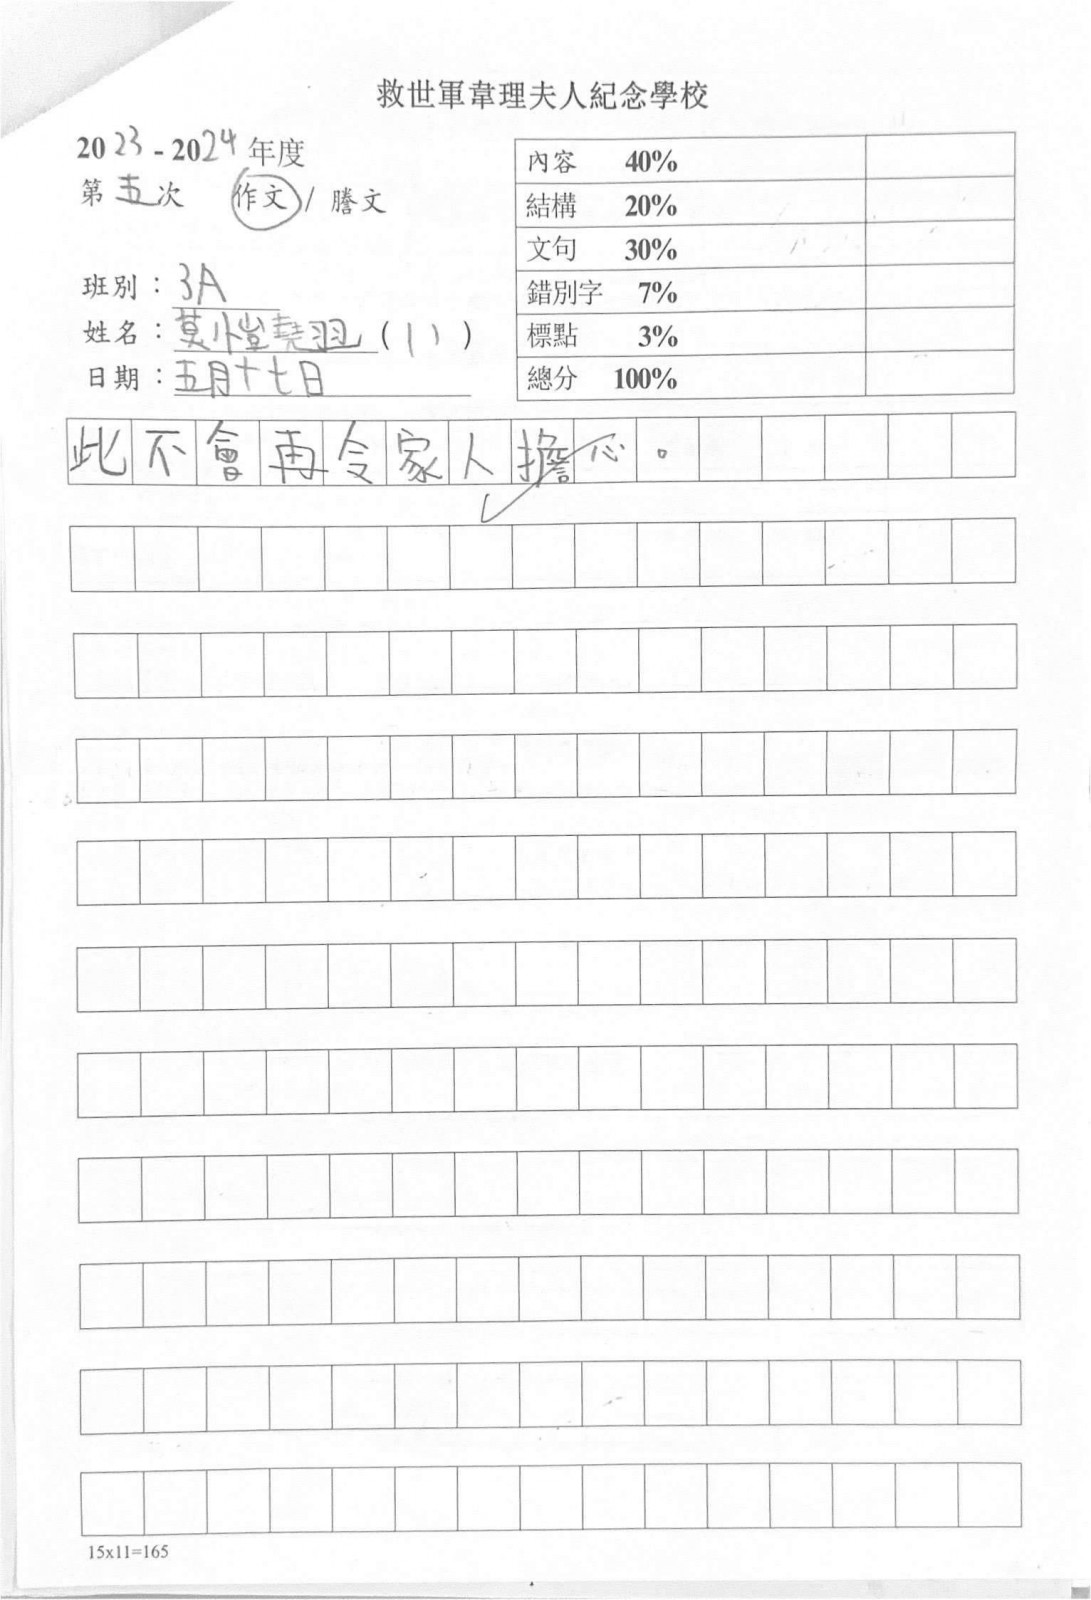 救世軍韋理夫人紀念學校
2023-2024年度
第五次 作文/謄文
班別：3A
姓名：莫愷堯羽（11）
日期：五月十七日
內容 40%
結構 20%
文句 30%
錯別字 7%
標點 3%
總分 100%
此不會再令家人擔心。
15x11=165